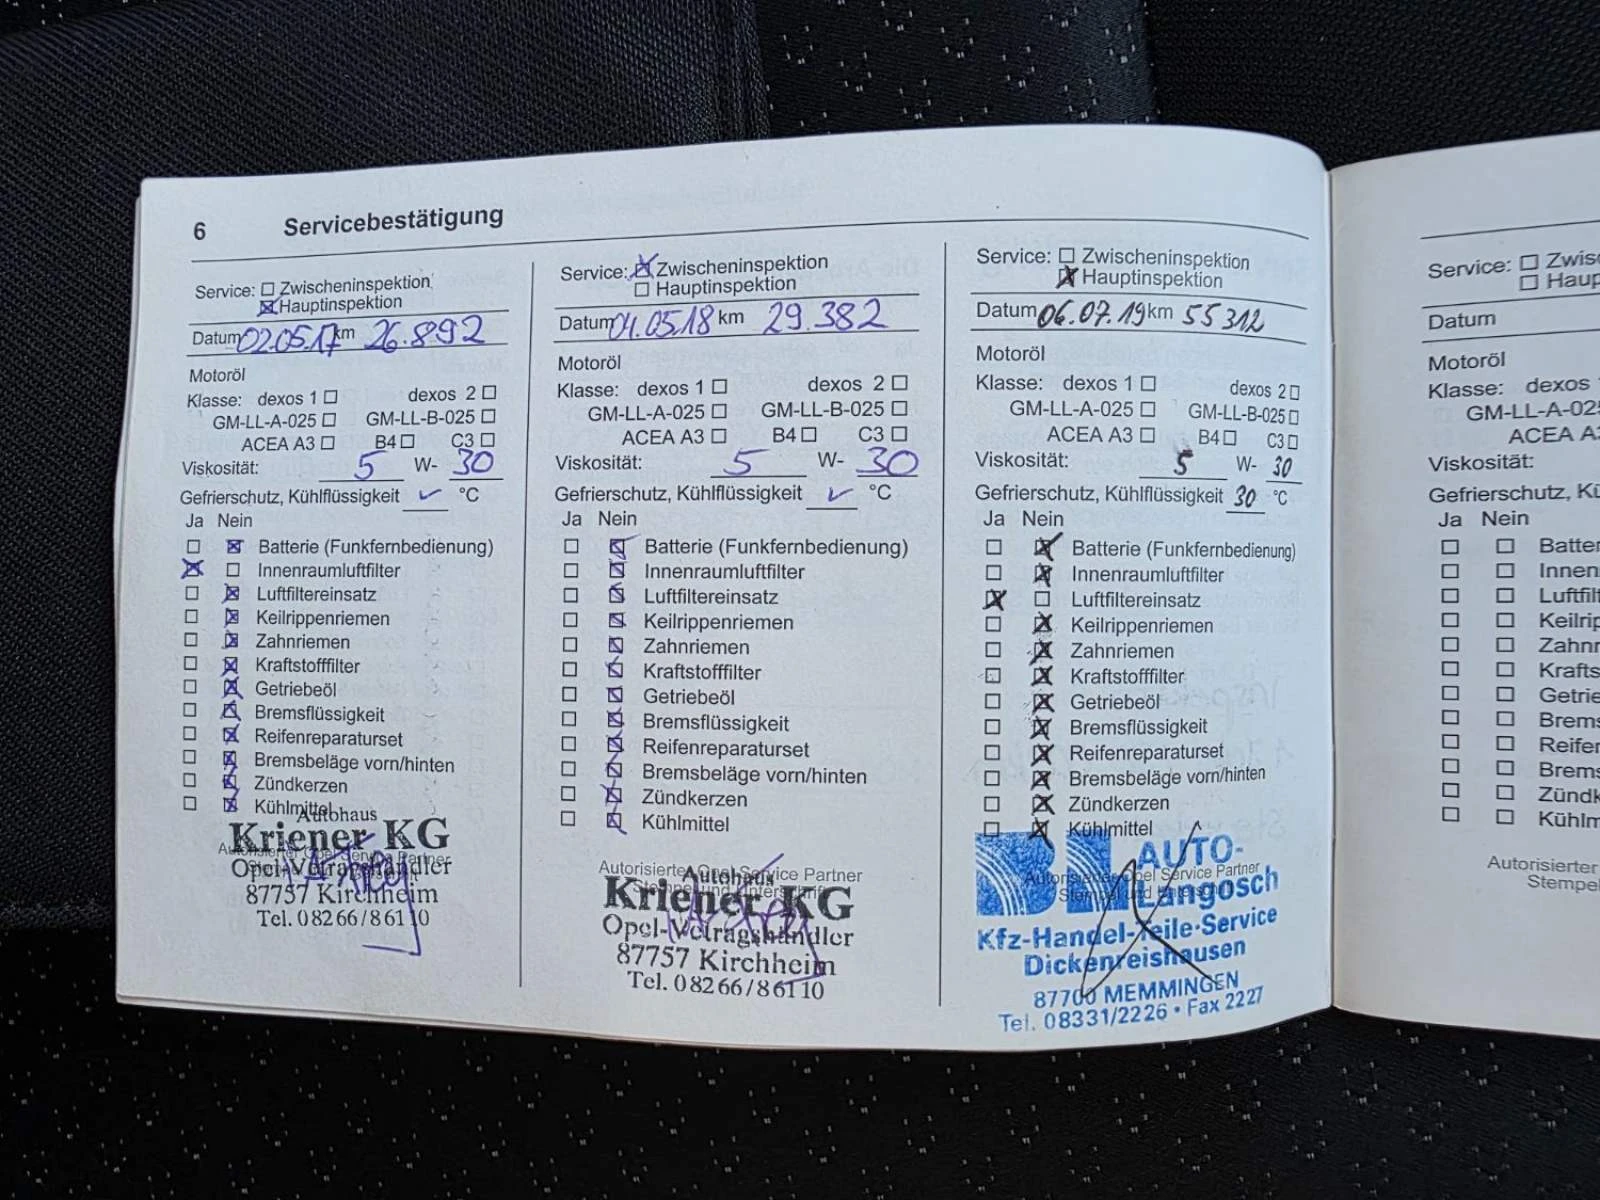 6 Servicebestätigung
Service: ☐ Zwischeninspektion
☒ Hauptinspektion
Datum 02.05.17 km 26.892
Motoröl
Klasse: dexos 1 ☐ dexos 2 ☐
GM-LL-A-025 ☐ GM-LL-B-025 ☐
ACEA A3 ☐ B4 ☐ C3 ☐
Viskosität: 5 W- 30
Gefrierschutz, Kühlflüssigkeit ✓ °C
Ja Nein
☐ ☒ Batterie (Funkfernbedienung)
☒ ☐ Innenraumluftfilter
☐ ☒ Luftfiltereinsatz
☐ ☒ Keilrippenriemen
☐ ☒ Zahnriemen
☐ ☒ Kraftstofffilter
☐ ☒ Getriebeöl
☐ ☒ Bremsflüssigkeit
☐ ☒ Reifenreparaturset
☐ ☒ Bremsbeläge vorn/hinten
☐ ☒ Zündkerzen
☐ ☒ Kühlmittel
Autohaus
Kriener KG
Autorisierter Opel Service Partner
Opel-Vetragshändler
87757 Kirchheim
Tel. 08266/86110
Service: ☒ Zwischeninspektion
☐ Hauptinspektion
Datum 04.05.18 km 29.382
Motoröl
Klasse: dexos 1 ☐ dexos 2 ☐
GM-LL-A-025 ☐ GM-LL-B-025 ☐
ACEA A3 ☐ B4 ☐ C3 ☐
Viskosität: 5 W- 30
Gefrierschutz, Kühlflüssigkeit ✓ °C
Ja Nein
☐ ☒ Batterie (Funkfernbedienung)
☐ ☒ Innenraumluftfilter
☐ ☒ Luftfiltereinsatz
☐ ☒ Keilrippenriemen
☐ ☒ Zahnriemen
☐ ☒ Kraftstofffilter
☐ ☒ Getriebeöl
☐ ☒ Bremsflüssigkeit
☐ ☒ Reifenreparaturset
☐ ☒ Bremsbeläge vorn/hinten
☐ ☒ Zündkerzen
☐ ☒ Kühlmittel
Autorisierter Opel Service Partner
Autohaus
Stempel und Unterschrift
Kriener KG
Opel-Vetragshändler
87757 Kirchheim
Tel. 08266/86110
Service: ☐ Zwischeninspektion
☒ Hauptinspektion
Datum 06.07.19 km 55312
Motoröl
Klasse: dexos 1 ☐ dexos 2 ☐
GM-LL-A-025 ☐ GM-LL-B-025 ☐
ACEA A3 ☐ B4 ☐ C3 ☐
Viskosität: 5 W- 30
Gefrierschutz, Kühlflüssigkeit 30 °C
Ja Nein
☐ ☒ Batterie (Funkfernbedienung)
☐ ☒ Innenraumluftfilter
☒ ☐ Luftfiltereinsatz
☐ ☒ Keilrippenriemen
☐ ☒ Zahnriemen
☐ ☒ Kraftstofffilter
☐ ☒ Getriebeöl
☐ ☒ Bremsflüssigkeit
☐ ☒ Reifenreparaturset
☐ ☒ Bremsbeläge vorn/hinten
☐ ☒ Zündkerzen
☐ ☒ Kühlmittel
AUTO-
Autorisierter Opel Service Partner
Stempel und Unterschrift
Langosch
Kfz-Handel-Teile-Service
Dickenreishausen
87700 MEMMINGEN
Tel. 08331/2226 • Fax 2227
Service: ☐ Zwisc
☐ Haup
Datum
Motoröl
Klasse: dexos
GM-LL-A-025
ACEA A3
Viskosität:
Gefrierschutz, Kü
Ja Nein
☐ ☐ Batter
☐ ☐ Innen
☐ ☐ Luftfilt
☐ ☐ Keilrip
☐ ☐ Zahnr
☐ ☐ Krafts
☐ ☐ Getrie
☐ ☐ Brems
☐ ☐ Reifen
☐ ☐ Brems
☐ ☐ Zündk
☐ ☐ Kühlm
Autorisierter
Stempel